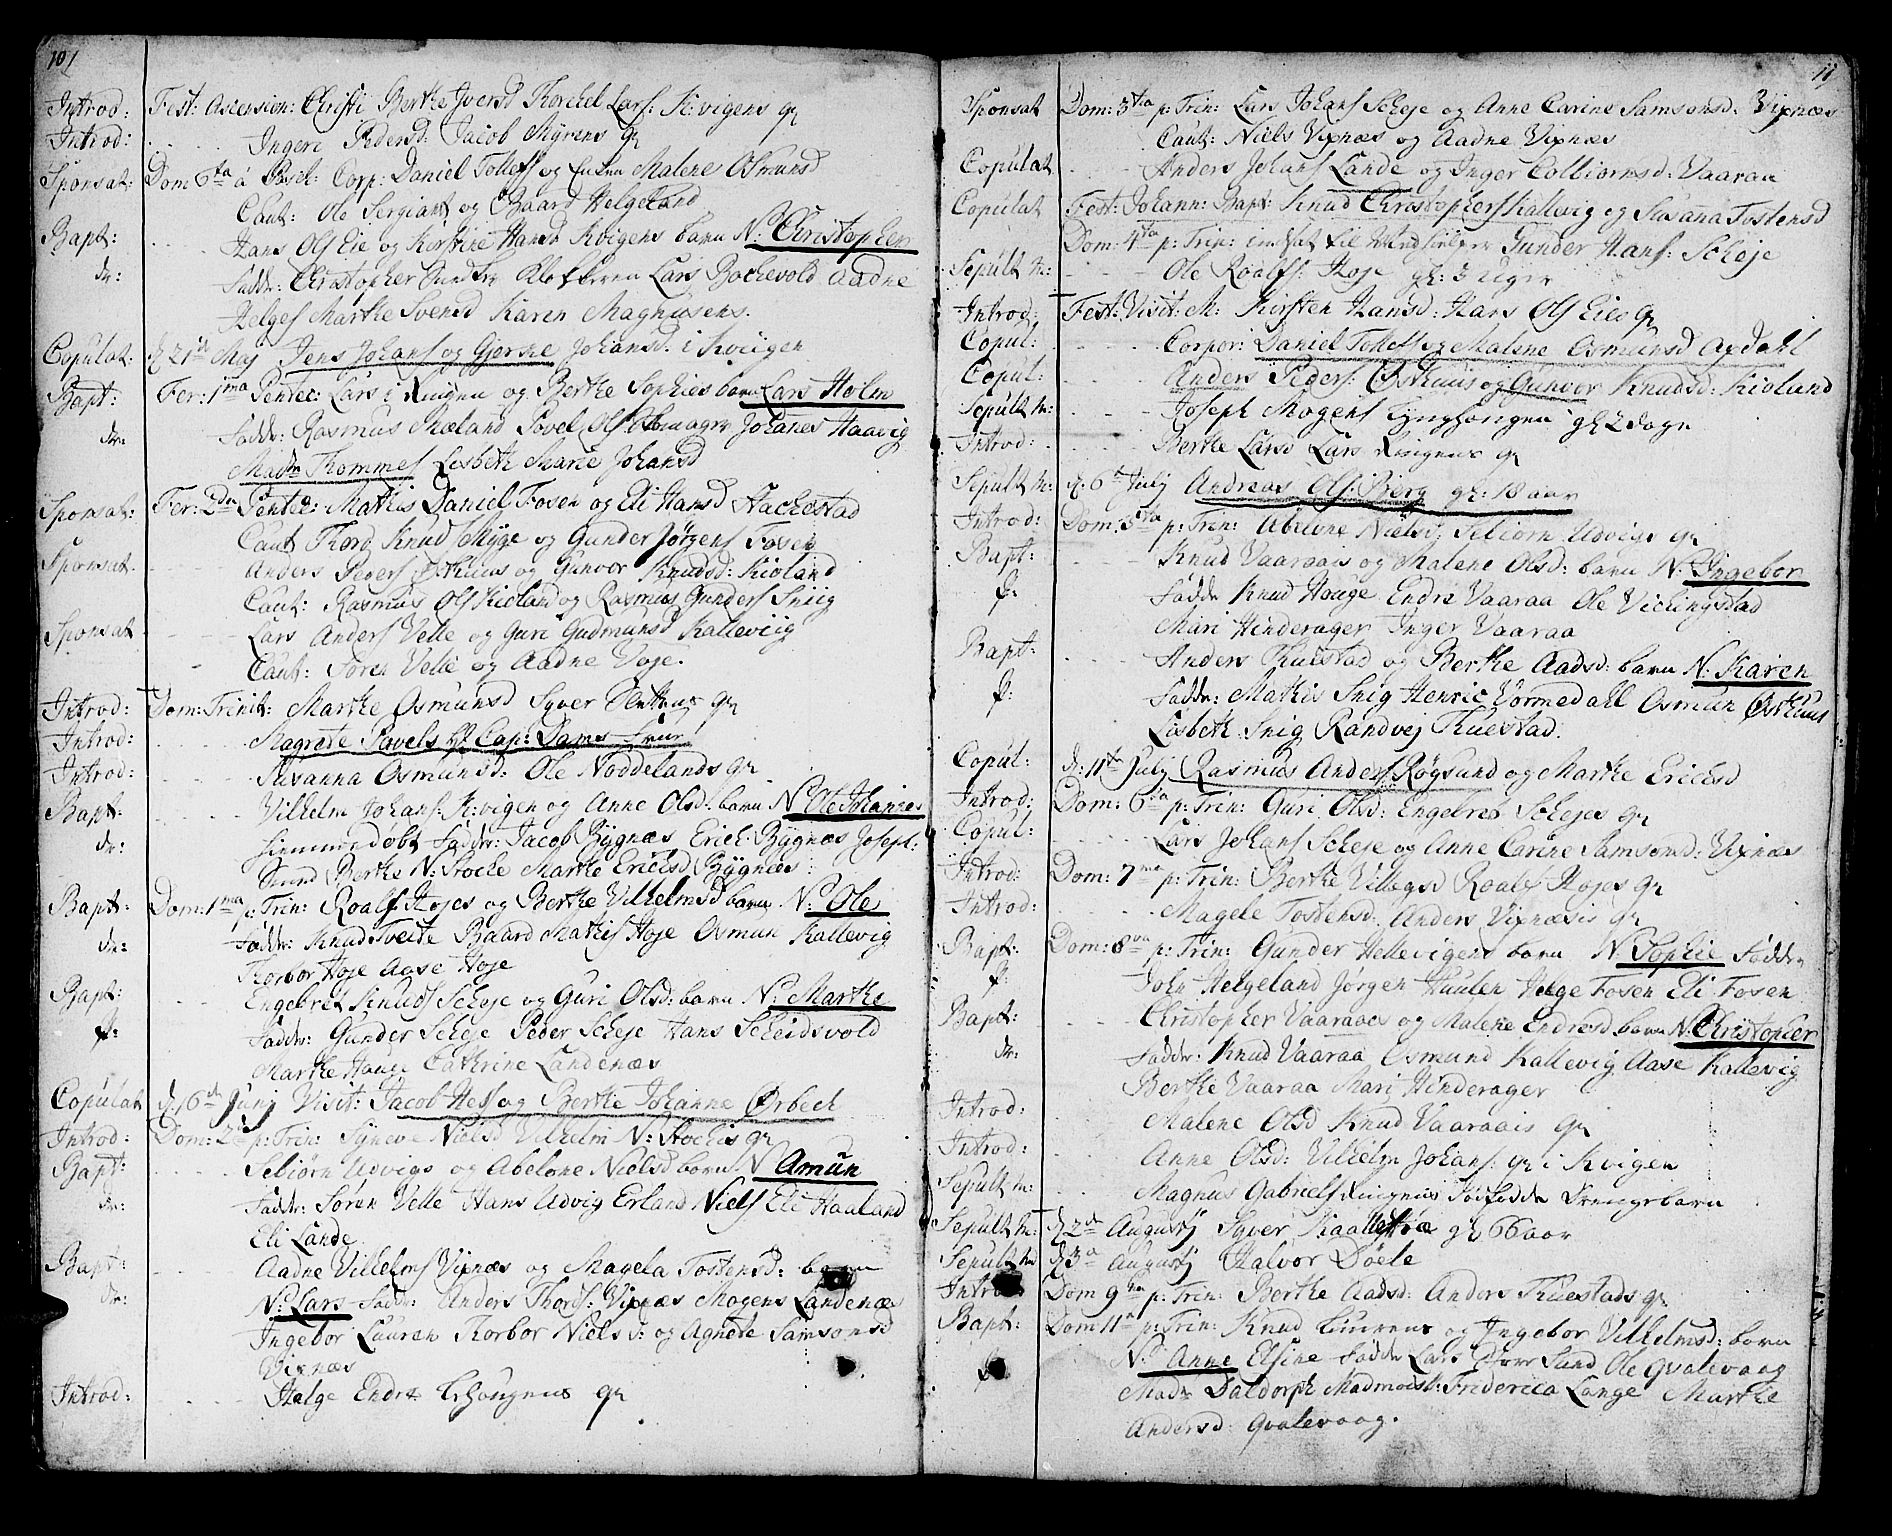 101
Introd: Fest: Ascension: Christi Berthe Iversd Thorchel Lars: Kvigens qv
Introd: Ingeri Pedersd: Jacob Myrens qv
Sponsat: Dom: 6ta á Corp: Daniel Tollefs og Malene Osmunds
Caut: Ole Sergiant og Baard Helgeland
Bapt: Hans Ols Eie og Kirstine Hansd Kvigens barn N: Christopher
dr: Faddr: Christopher Klokkeren Lars Bochevold Aadne
Helges Marthe Svensd Karen Magnusens.
Copulat: d 21de Maj Jens Johans og Gjerthe Johansd. i Kvigen
Bapt: Fer: 1ma Pentec: Lars i Ringen og Berthe Sophies barn Lars Holm
dr: Faddr: Rasmus Mæland Povel Ols Johanes Haavig
Madm Thommes Lisbeth Marie Johansd
Sponsat: Fer: 2da Pentec: Mathis Daniel Fosen og Eli Hansd Hachestad
Caut Thord Knud Myge og Gunder Jørgens Fosen
Sponsat Anders Peders Østhuus og Gunvor Knudsd: Kioland
Caut: Rasmus Ols Kioland og Rasmus Gunders Sniig
Sponsat Lars Anders Velle og Guri Gudmunsd Kalleviig
Caut: Søren Velle og Aadne Voje.
Introd: Dom: Trinit: Marthe Osmunsd Syver qv
Introd: Magrete Povels Cap: Dams frue
Introd: Susanna Osmunsd: Ole Noddelands qv
Bapt: Vilhelm Johans: Kvigen og Anne Olsd: barn N Ole Johannes
dr: hiemmedøbt Faddr: Jacob Bygnæs Erich Bygnæs Joseph:
Berthe N: Stocke Marthe Ericsd Bygnæs
Bapt: Dom: 1ma p: Trin: Roalf Højes og Berthe Vilhelmsd barn N: Ole
dr: Faddr: Knud Tveite Baard Mathis Høje Osmun Kallevig
Thorbor Høje Aase Høje
Bapt: Engebret Knuds Scheje og Guri Olsd: barn N: Marthe
f: Faddr: Gunder Scheje Peder Scheje Hans Scheidsvold
Marthe Hauge Cathrine Landenæs
Copulat d. 16de Junij Visit: Jacob Hels og Berthe Johanne Ørbech
Introd: Dom: 2da p: Trin: Syneve Nielsd Vilhelm N: Stockes qv
Bapt: Sebiørn Udvigs og Abelone Nielsd barn N Amun
dr: Faddr: Søren Velle Hans Udvig Erland Niels Eli Haaland
Eli Lande.
Bapt: Aadne Villelms Vixnæs og Magela Tostensd: barn
dr: N: Lars Faddr: Anders Thors: Vixnæs Mogens Landenæs
Ingebor Lauren Thorbor Niels d: og Agnete Samsonsd
Vixnæs
Introd: Helge Endre qv
11
Sponsat Dom: 3tia p: Trin: Lars Johans Scheje og Anne Carine Samsonsd: Vixnæs
Caut: Niels Vixnæs og Aadne Vixnæs
Copulat Anders Johans Lande og Inger Collbiornsd: Vaaraa
Copulat Fest: Johann: Bapt: Knud Christophers Kallevig og Susana Tostensd
Dom: 4ta p: Trin: indsat til Gunder Hans: Scheje
Sepult m: Ole Roalfs: Høje gl: 3 Uger
Introd: Fest: Visit: M: Kirsten Hansd: Hans Ols Eies qv
Copul: Corpor: Daniel Tollefs og Malene Osmunsd Axdahl
Copul: Anders Peders: Østhuus og Gunvor Knudsd: Kioland
Sepult m: Joseph Mogens gl 2 dage
Introd: Berthe Larsd Lars Ringens qv
Sepult m: d: 6te Julij Andreas Ols: Bierg gl: 18 aar
Introd: Dom: 5ta p: Trin: Abelone Nielsd: Sebiørn Udvigs qv
Bapt: Knud Vaaraais og Malene Olsd: barn N. Ingebor
f: Faddr Knud Hauge Endre Vaaraa Ole Vichingstad
Mari Hinderager Inger Vaaraa
Bapt: Anders Thuestad og Berthe Aadsd: barn N: Karen
f: Faddr: Mathis Snig Henric Vormedahl Osmun Østhuus
Lisbeth Snig Randvej Thuestad.
Copul: d: 11te Julj Rasmus Anders Røgsund og Marthe Ericsd
Introd: Dom: 6ta p: Trin: Guri Olsd: Engebret Schejes qv
Copul: Lars Johans Scheje og Anne Carine Samsonsd: Vixnæs
Introd: Dom: 7ma p: Trin: Berthe Roalf Højes qv
Introd: Magele Tostensd: Anders Vixnæsis qv
Bapt: Dom: 8va p: Trin: Gunder Hellevigens barn N: Sophie Faddr
f: John Helgeland Jørgen Huulen Helge Fosen Eli Fosen
Bapt: Christopher Vaaraaes og Malene Endresd barn N: Christopher
dr: Faddr: Knud Vaaraa Osmund Kallevig Aase Kallevig
Berthe Vaaraa Mari Hinderager
Introd: Malene Olsd Knud Vaaraais qv
Introd: Anne Olsd: Vilhelm Johans: qv i Kvigen
Sepult m: Magnus Gabriels Ringens Drengebarn
Sepult m: d 2de Augustj Syver gl 66 aar
Sepult m d 3a Augustj Halvor Døele
Introd Dom 9na p: Trin: Berthe Aadsd: Anders Thuestads qv
Bapt: Dom 11a p: Trin: Knud og Ingebor Vilhelmsd: barn
N: Anne Elsine Faddr Lars Ole Qvalevaag
Madm Daldorph Madmoisl: Frederica Lange Marthe
Andersd: Qvalevaag.